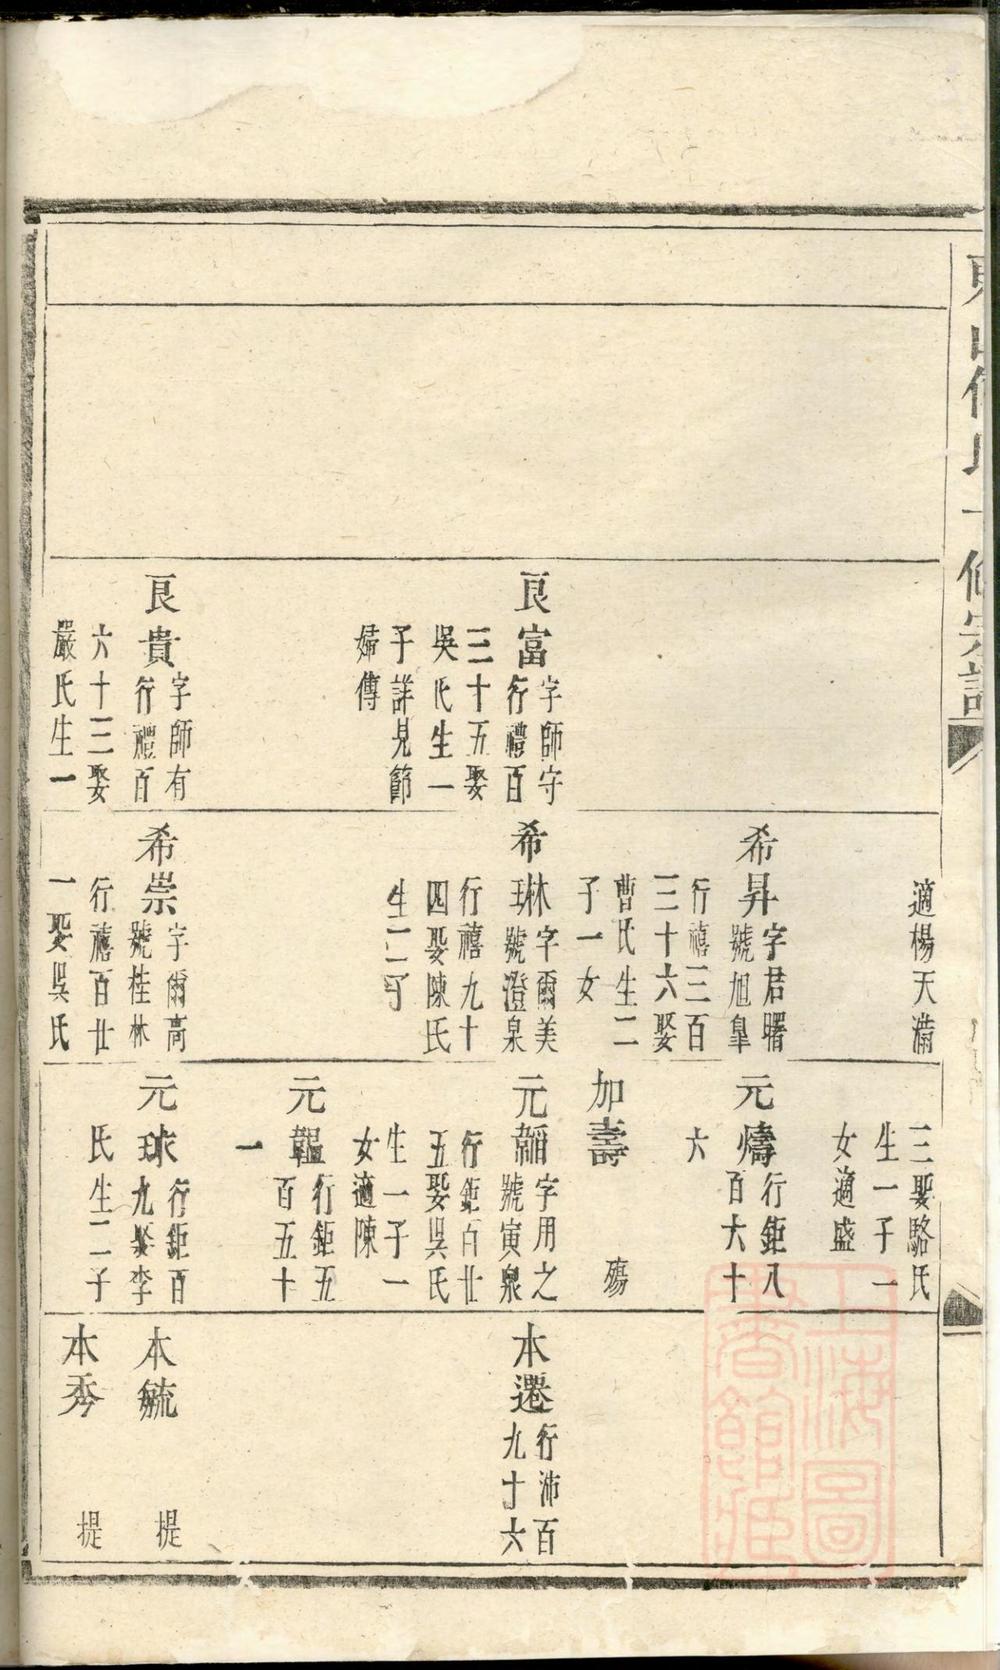 適楊天滿
三娶駱氏
生一子一
女適盛
希昇
字君曙
號旭臯
行禧三百
三十六娶
曹氏生二
子一女
元燽
行鉅八
百六十
六
加壽
殤
良富
字師守
行禮百
三十五娶
吳氏生一
子詳見節
婦傳
希琳
字爾美
號澄泉
行禧九十
四娶陳氏
生二子
元韜
字用之
號寅泉
行鉅百廿
五娶吳氏
生一子一
女適陳
元韞
行鉅五
百五十
一
本遷
行沛百
九十六
良貴
字師有
行禮百
六十三娶
嚴氏生一
希崇
字爾高
號桂林
行禧百廿
一娶吳氏
元球
行鉅百
九娶李
氏生二子
本毓
提
本秀
提
上海圖
書館藏